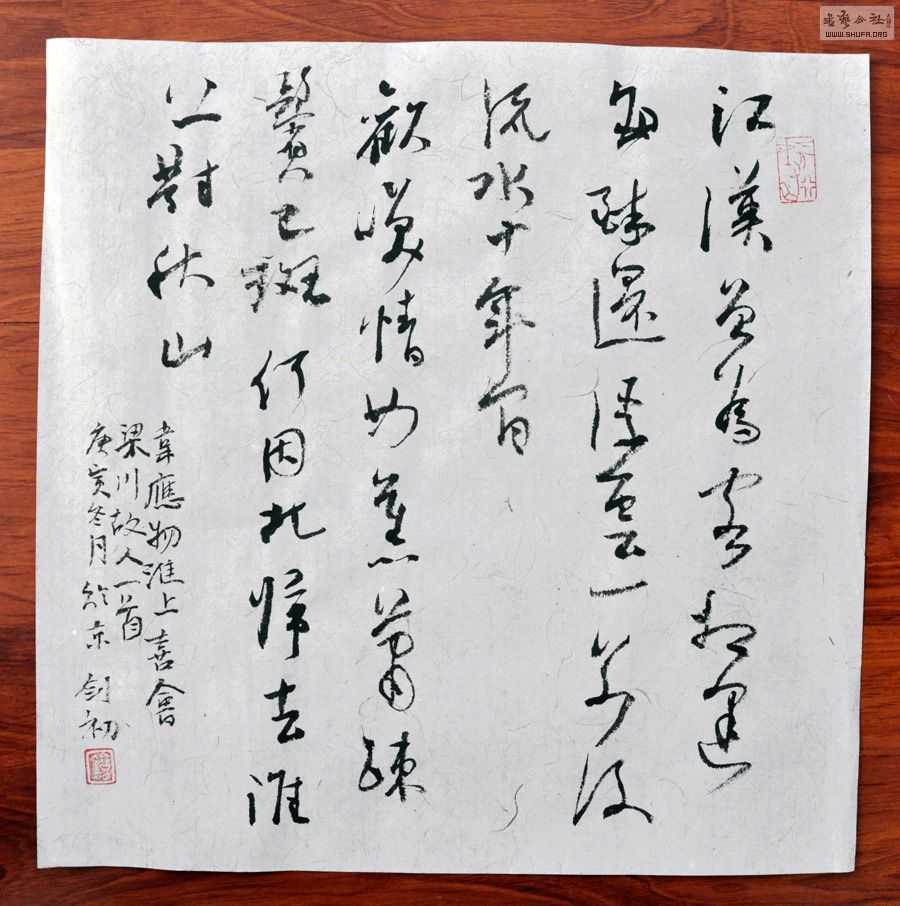 江漢曾為客相逢
每醉還浮雲一別後
流水十年間
歡笑情如舊蕭疎
鬢已斑何因北歸去淮
上對秋山
韋應物淮上喜會
梁川故人一首
庚亥冬月於京 剑初
書藝公社
WWW.SHUFA.ORG